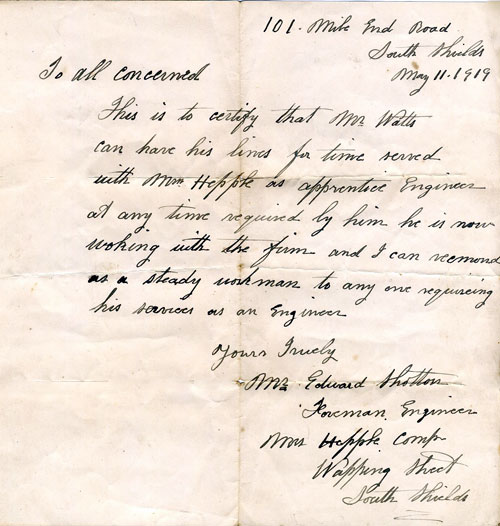 101. Mile End Road
South Shields
May 11. 1919
To all concerned
This is to certify that Mr Watts
can have his lines for time served
with Mrs Hepple as apprentice Engineer
at any time required by him he is now
woking with the firm and I can reemond
as a steady workman to any one requireing
his services as an Engineer
Yours Truely
Mr Edward Shotton
Foreman. Engineer
Mrs Hepple Compy
Wapping Street
South Shields